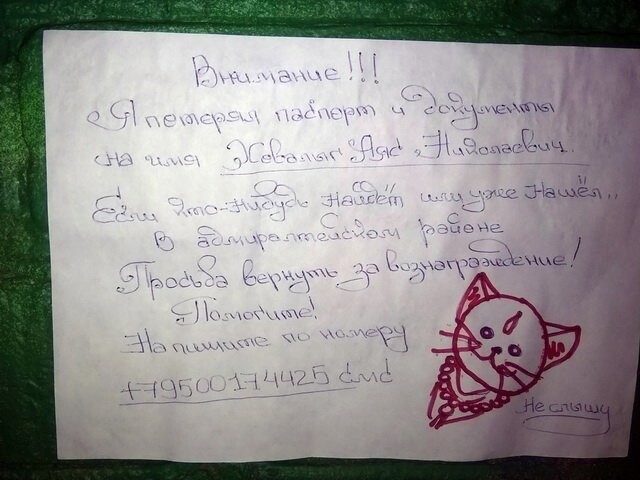 Внимание!!!
Я потерял паспорт и документы
на имя Ховалыг Аяс Николаевич.
Если кто-нибудь найдёт или уже нашёл..
В адмиралтейском районе
Просьба вернуть за вознаграждение!
Помогите!
Напишите по номеру
+79500174425 смс
Не слышу